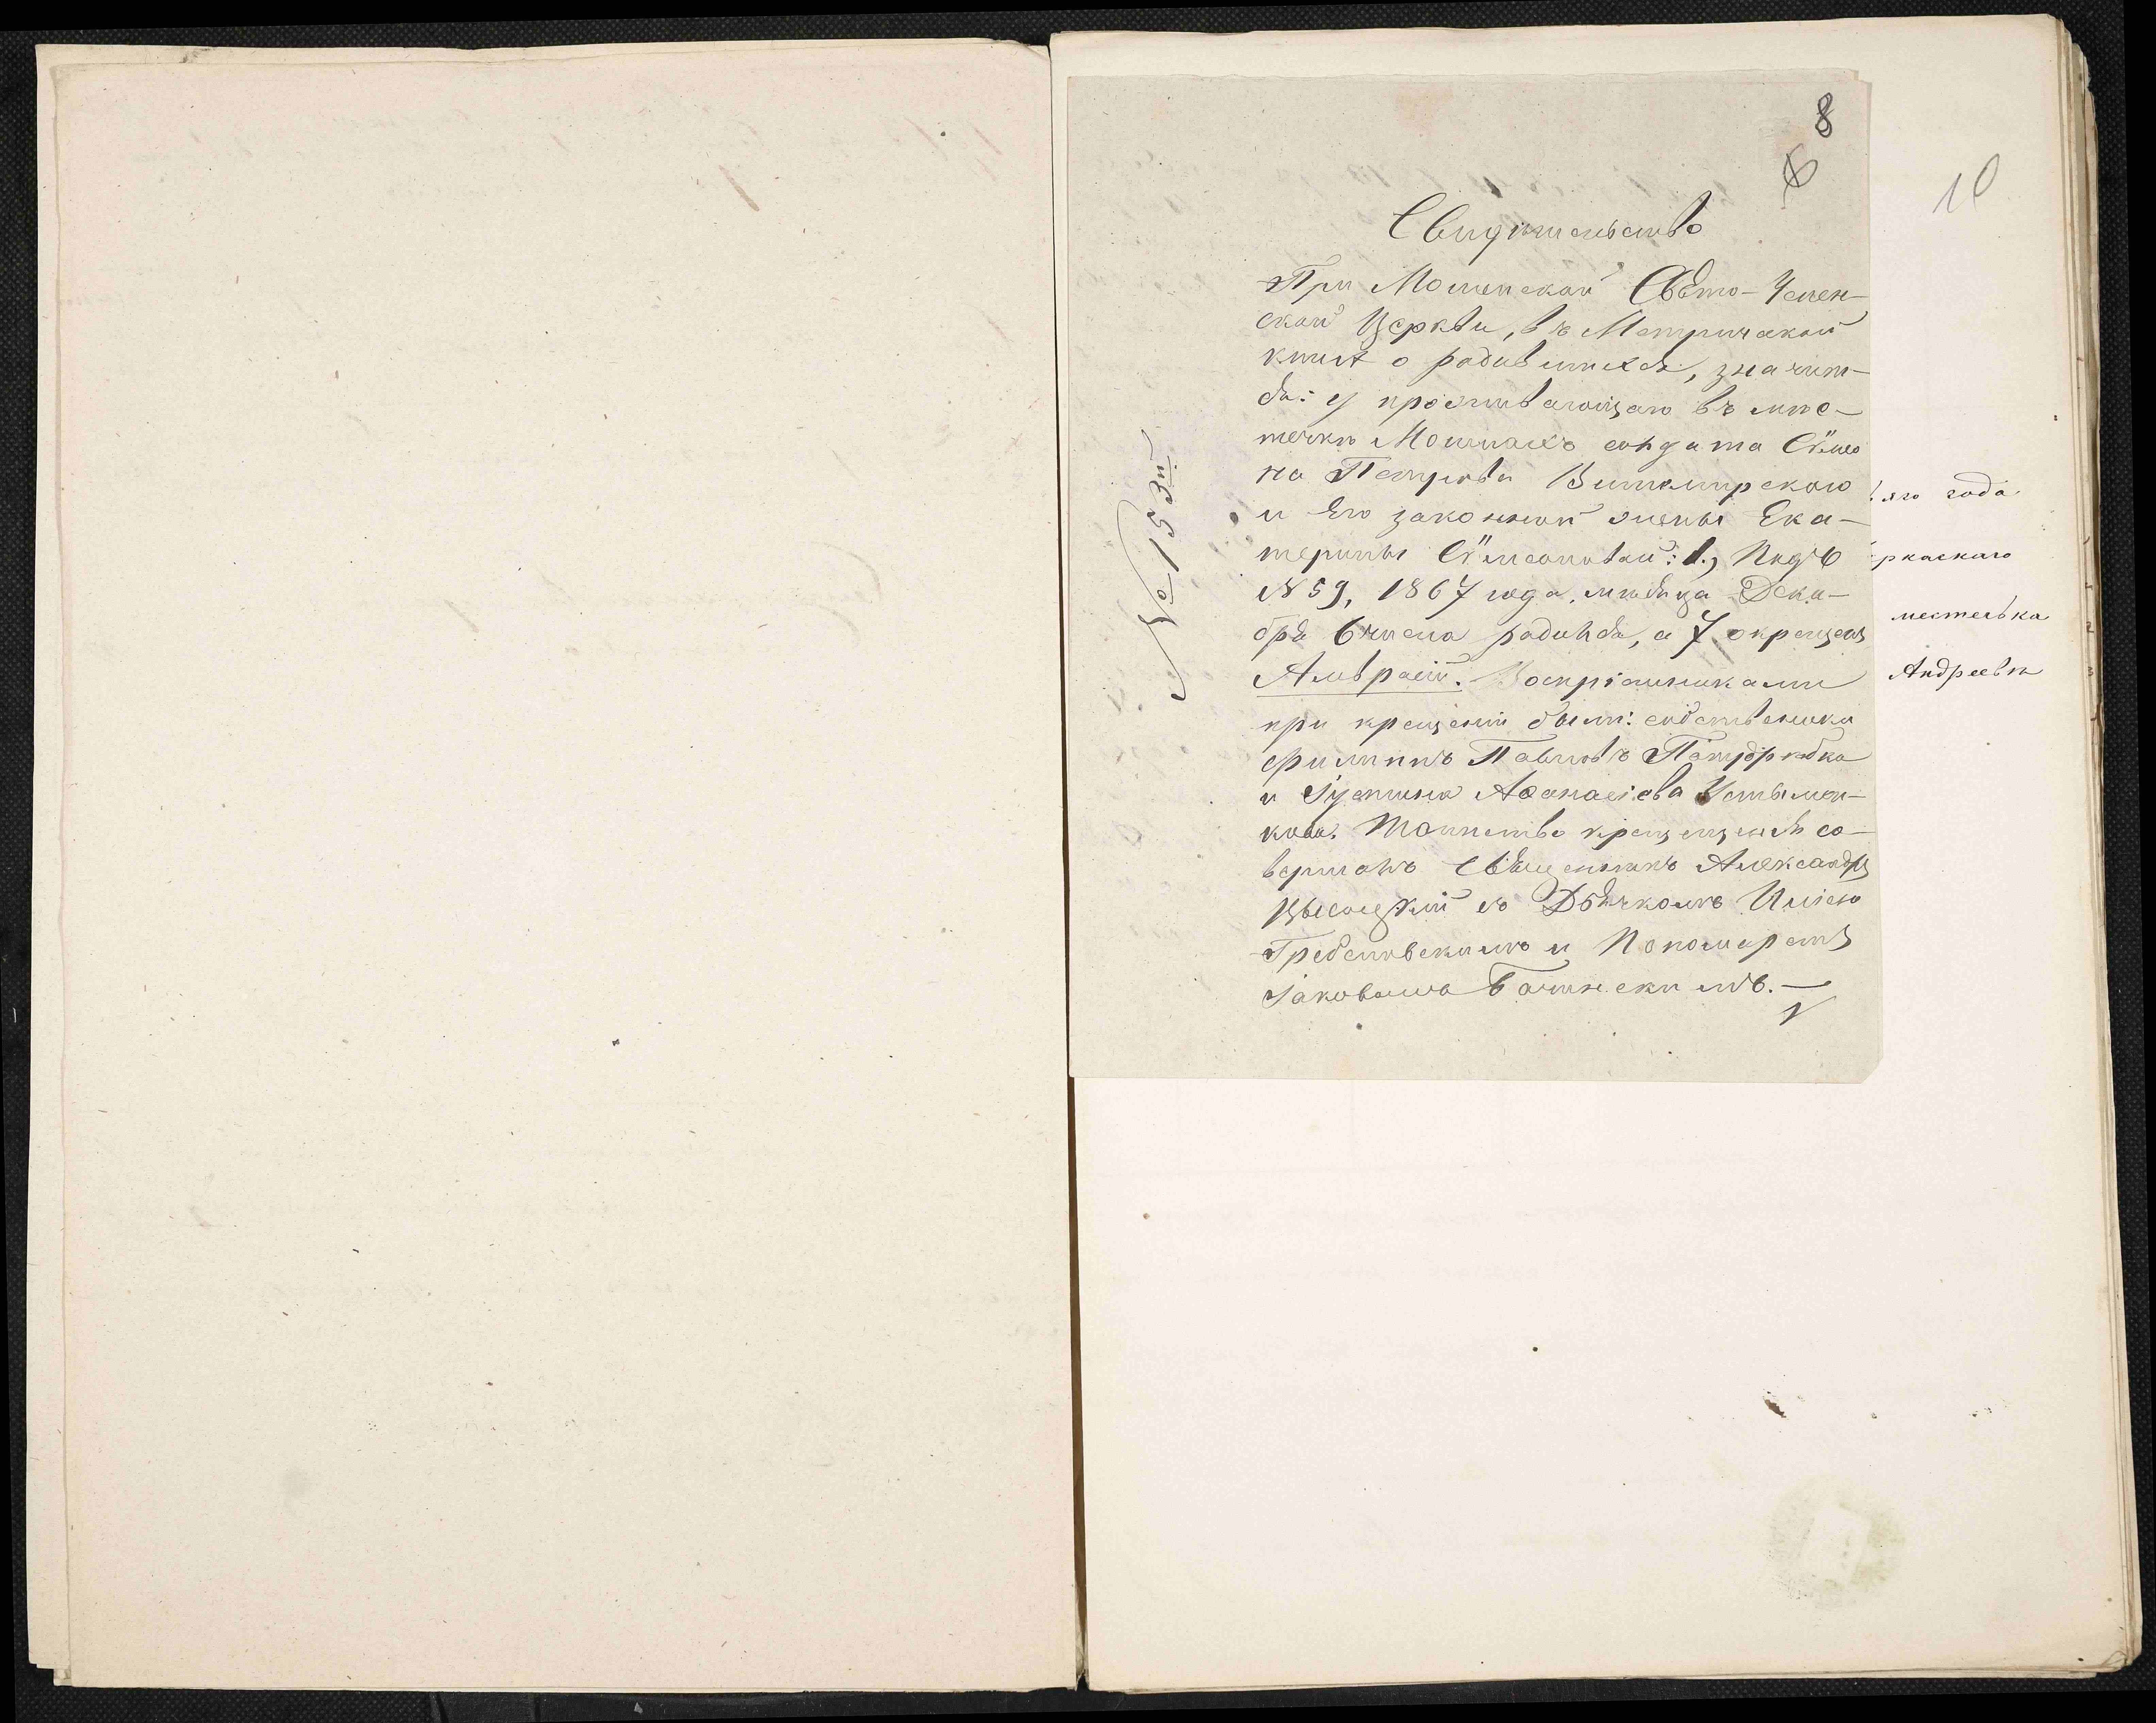 8
6
10
Свидѣтельство
При Мошенской Свято-Успен-
ской Церкви, въ Метрической
книгѣ о родившихся, значит-
ся: у проживающаго въ мѣс-
течкѣ Мошнахъ солдата Сѵмео
на Петрова
и Его законной жены Ека-
терины Сѵмеоновой: 1., Подъ
№ 59, 1867 года, мѣсяца Дека-
бря 6 числа родился, а 7 окрещенъ
Амвросій. Воспріемниками
при крещеніи были: собственники
Филиппъ Павловъ
и Іустина Аѳанасіева Устымен-
кова. Таинство крещенія со-
вершалъ Священникъ Александръ
съ Дьячкомъ Иліею
Гребеновскимъ и Пономаремъ
Іаковомъ Бачинскимъ.—
№ 153й
яго года
ркаскаго
местечка
Андреевъ